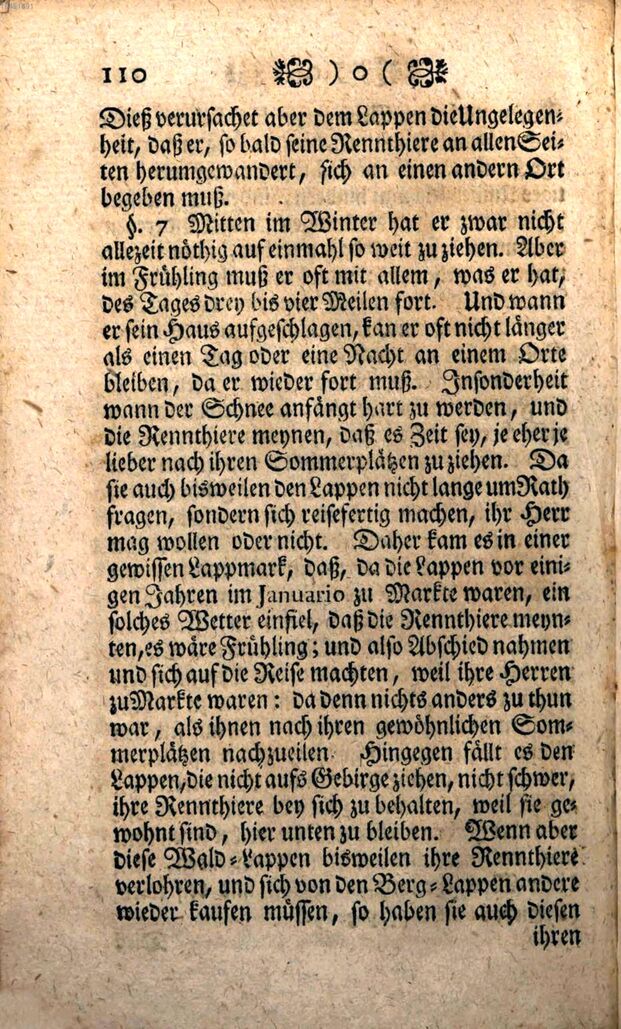 110 ) o (
Dieß verursachet aber dem Lappen die Ungelegen-
heit, daß er, so bald seine Rennthiere an allen Sei-
ten herumgewandert, sich an einen andern Ort
begeben muß.
§. 7 Mitten im Winter hat er zwar nicht
allezeit nöthig auf einmahl so weit zu ziehen. Aber
im Frühling muß er oft mit allem, was er hat,
des Tages drey bis vier Meilen fort. Und wann
er sein Haus aufgeschlagen, kan er oft nicht länger
als einen Tag oder eine Nacht an einem Orte
bleiben, da er wieder fort muß. Insonderheit
wann der Schnee anfängt hart zu werden, und
die Rennthiere meynen, daß es Zeit sey, je eher je
lieber nach ihren Sommerplätzen zu ziehen. Da
sie auch bisweilen den Lappen nicht lange um Rath
fragen, sondern sich reisefertig machen, ihr Herr
mag wollen oder nicht. Daher kam es in einer
gewissen Lappmark, daß, da die Lappen vor eini-
gen Jahren im Januario zu Markte waren, ein
solches Wetter einfiel, daß die Rennthiere meyn-
ten, es wäre Frühling; und also Abschied nahmen
und sich auf die Reise machten, weil ihre Herren
zu Markte waren: da denn nichts anders zu thun
war, als ihnen nach ihren gewöhnlichen Som-
merplätzen nachzueilen. Hingegen fällt es den
Lappen, die nicht aufs Gebirge ziehen, nicht schwer,
ihre Rennthiere bey sich zu behalten, weil sie ge-
wohnt sind, hier unten zu bleiben. Wenn aber
diese Wald-Lappen bisweilen ihre Rennthiere
verlohren, und sich von den Berg-Lappen andere
wieder kaufen müssen, so haben sie auch diesen
ihren